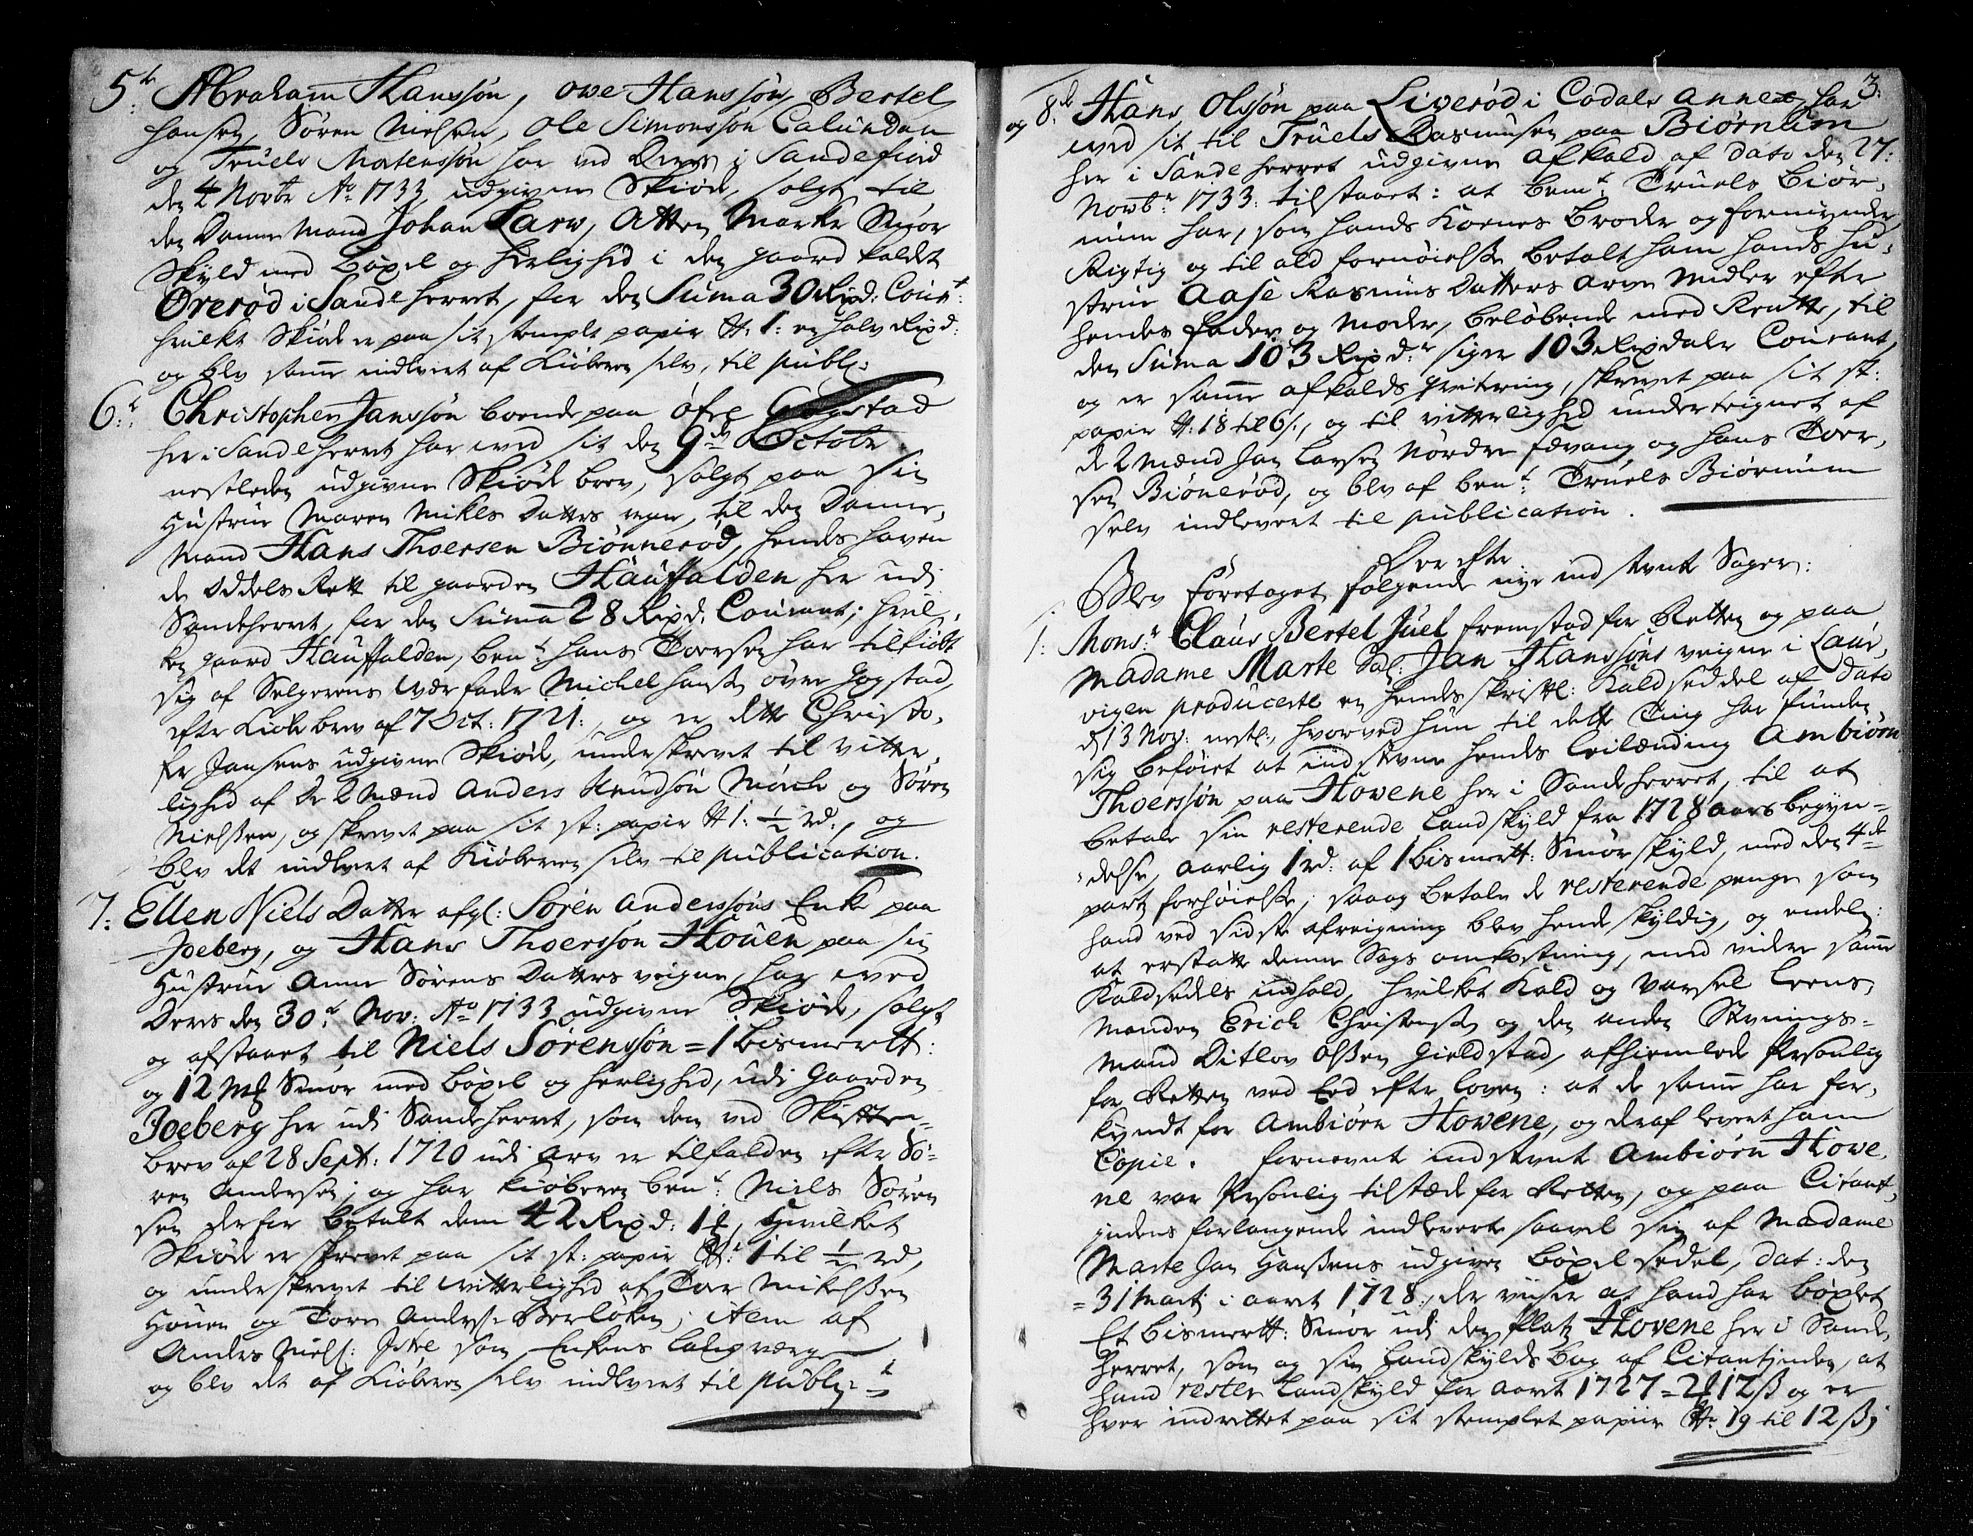 5te Abraham Hanssøn, Ove Hanssøn, Bertel
Hansen, Søren Nielsen, Ole Simonssøn Calundan
og Truels Mortenssøn har ved Deres i Sandefiord
den 4 Novbr Ao 1733 udgivne Skiøde, solgt til
den Danne Mand Johan Larw, Atten Marker Smør
Skyld med Bøxel og herlighed i den gaard kaldet
Ørerød i Sandeherret, for den Suma 30 Rixd: Cour:t
hvilket Skiøde er paa sit stemplt papir N: 1: en halv Rixd:
og blev samme indlevert af Kiøberen selv, til publ:
6:t Christopher Janssøn boende paa Øfre Gogstad
her i Sandeherret har wed sit den 9de Octobr
nestleden udgivne Skiøde brev, solgt paa sin
Hustrue Maren Mikels Datters vegne, til den Danne,
Mand Hans Thoersen Biønnerød, hendes haven
de Oddels Rett til gaarden Hauffalden her udi
Sandeherret, for den Suma 28 Rixd: Courant; hvil,
ken gaard Hauffalden, bem:t Hans Toersen har tilkiøbt
sig af Selgerens Værfader Michel Hansen øvre Gogstad,
efter Kiøbe brev af 7 Oct: 1721:, og er dette Christo,
fer Jansens udgivne Skiøde, underskrevet til vitter,
lighed af De 2 Mænd Anders Knudsøn Mørch og Søren
Nielssen, og skrevet paa sit st: papir N 1: ½ rd:, og
blev det indlevert af Kiøberen selv til publication.
7: Ellen Niels Datter afgl: Søren Anderssøns Enke paa
Joeberg, og Hans Thoerssøn Houen paa sin
Hustrue Anne Sørens Datters veigne, har wed
Deres den 30:t Nov: Ao 1733 udgivne Skiøde, solgt
og afstaaet til Niels Sørenssøn = 1 bismertt:
og 12 Mk Smør med bøxel og herlighed, udi Gaarden
Joeberg her udi Sandeherret, som dem ved Skifte,
brev af 28 Sept: 1720 udi arv er tilfalden efter Sø-
ren Andersen; og har Kiøberen bem:t Niels Søren
sen derfor betalt dem 42 Rixd: 1 ꝷ, Hvilket
Skiøde er skrevet paa sit st: papir N:r 1 til ½ rd,
og underskrevet til witterlighed af Tor Mikelssen
Houen og Tore Anders: Berløken; item af
Anders Niels: Istre som Enkens laugværge
og blev det af Kiøberen selv indlevert til publ:
3.
og 8:de Hans Olssøn paa Liverød i Codals annex, har
wed sit til Truels Rasmusen paa Biørnum
her i Sandeherret udgivne afkald af dato den 27:
Novb:r 1733 tilstaaet: at bem:t Truels Biør,
num har, som hands Koenes broder og formynder
Rigtig og til ald fornøielse betalt ham hands Hu,
strue Aase Rasmus Datters arve Midler efter
hendes fader og Moder, beløbende med Rentte, til
den Suma 103 Rixd:r siger 103 Rixdaler Courant,
og er samme afkalds qvitering, skrevet paa sit st:
papir N: 18 til 6 s:, og til vitterlighed underteignet af
de 2 Mænd Jan Larsen Nordre Fevang og Hans Toer,
sen Biønerød, og blev af bem:t Truels Biørnum
selv indlevert til publication.
Der efter
Blev foretaget følgende nye ind stevnte Sager:
1: Mons:r Claus Bertel Juel fremstod for Retten og paa
Madame Marte Sal: Jan Hanssøns veigne i Laur,
vigen producerte en hendes skriftl: Kaldseddel af dato
d 13 Nov: nestl:, hvorved hun til dette Ting har funden
sig beføiet at indstevne hendes Leilænding Ambiørn
Thoerssøn paa Hovene her i Sandeherret, til at
betale sin resterende Landskyld fra 1728 aars begyn=
delse, aarlig 1 rd: af 1 bismertt: Smør skyld, med den 4de
part forhøielse, saa og betale de resterende penge som
hand ved sidste afreigning blev hende skyldig, og endel:
at erstatte denne Sags omkostning, med videre samme
Kaldsedels indhold, hvilket Kald og Varsel Lens,
manden Erich Christensen og den anden Stevnings=
mand Ditlov Olssen Gieldstad, afhiemlede Personlig
for Retten ved Eed efter loven: at de samme har for,
kyndt for Ambiørn Hovene, og deraf levert ham
Copie. fornevnt indstevnt Ambiørn Hove
ne var Personlig tilstæde for Retten, og paa Citant,
indens forlangende indleverte saavel sin af Madame
Marte Jan Hanssens udgivne bøxel sedel, dat: den
= 31 Marti i aaret 1728:, der viiser at hand har bøxlet
Et bismertt: Smør udi den Platz Hovene her i Sande,
Herret, som og sin Landskylds bog af Citantinden, at
hand rester Landskyld for aaret 1727 = 2 ꝷ 12 ß og er
hver indrettet paa sit stemplet papiir N: 19 til 12 ß;